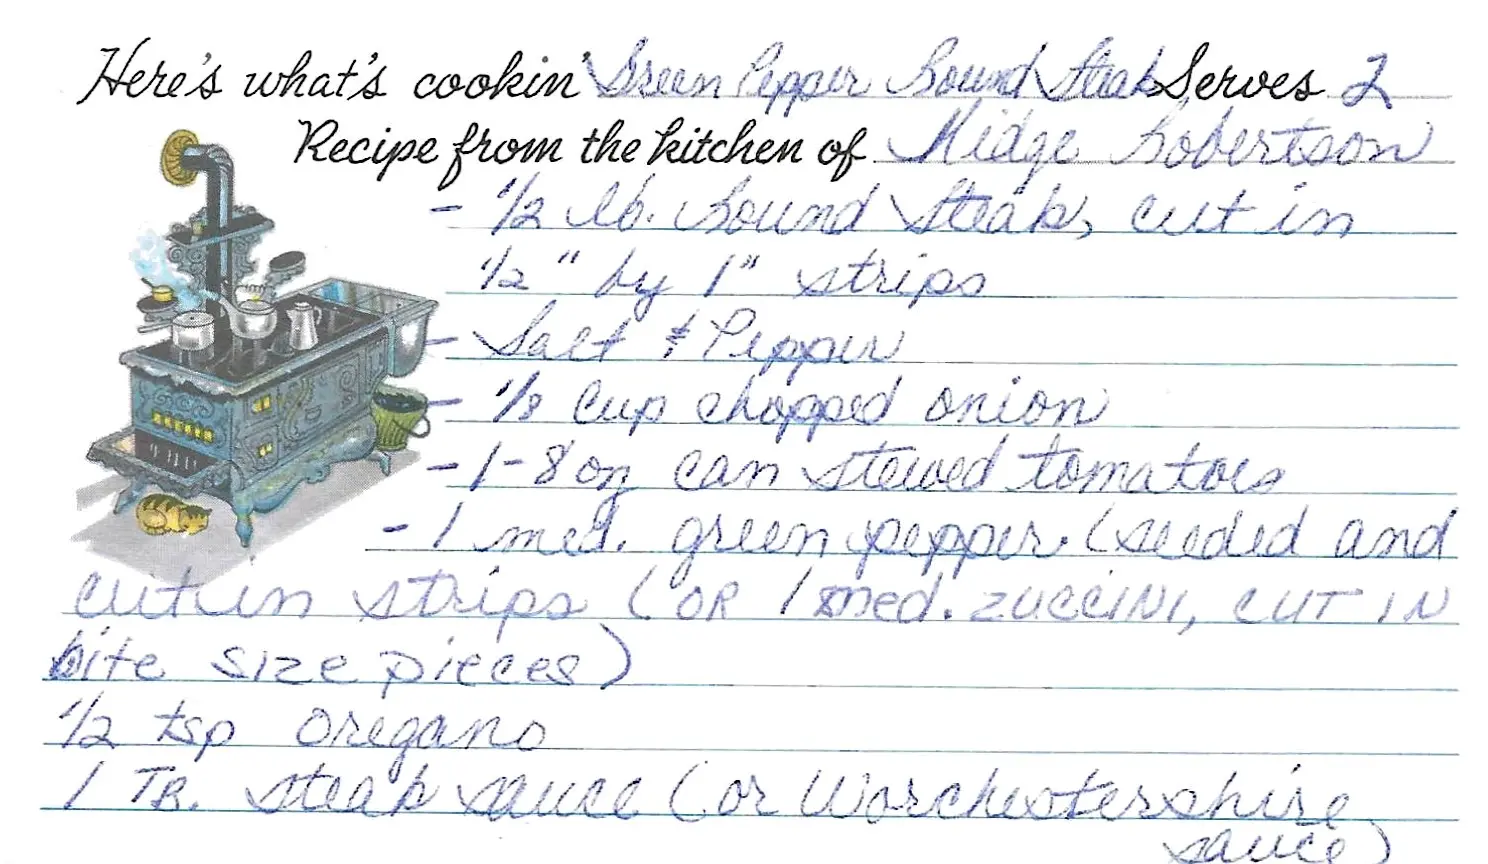 Here's what's cookin' Green Pepper Round Steak Serves 2
Recipe from the kitchen of Midge Robertson
- 1/2 lb. Round Steak, cut in
1/2" by 1" strips
- Salt & Pepper
- 1/3 Cup chopped onion
- 1-8 oz can stewed tomatoes
- 1 med. green pepper. (seeded and
cut in strips (OR 1 med. ZUCCINI, CUT IN
bite SIZE pieces)
1/2 tsp Oregano
1 TB. steak sauce (or Worchestershire
sauce)